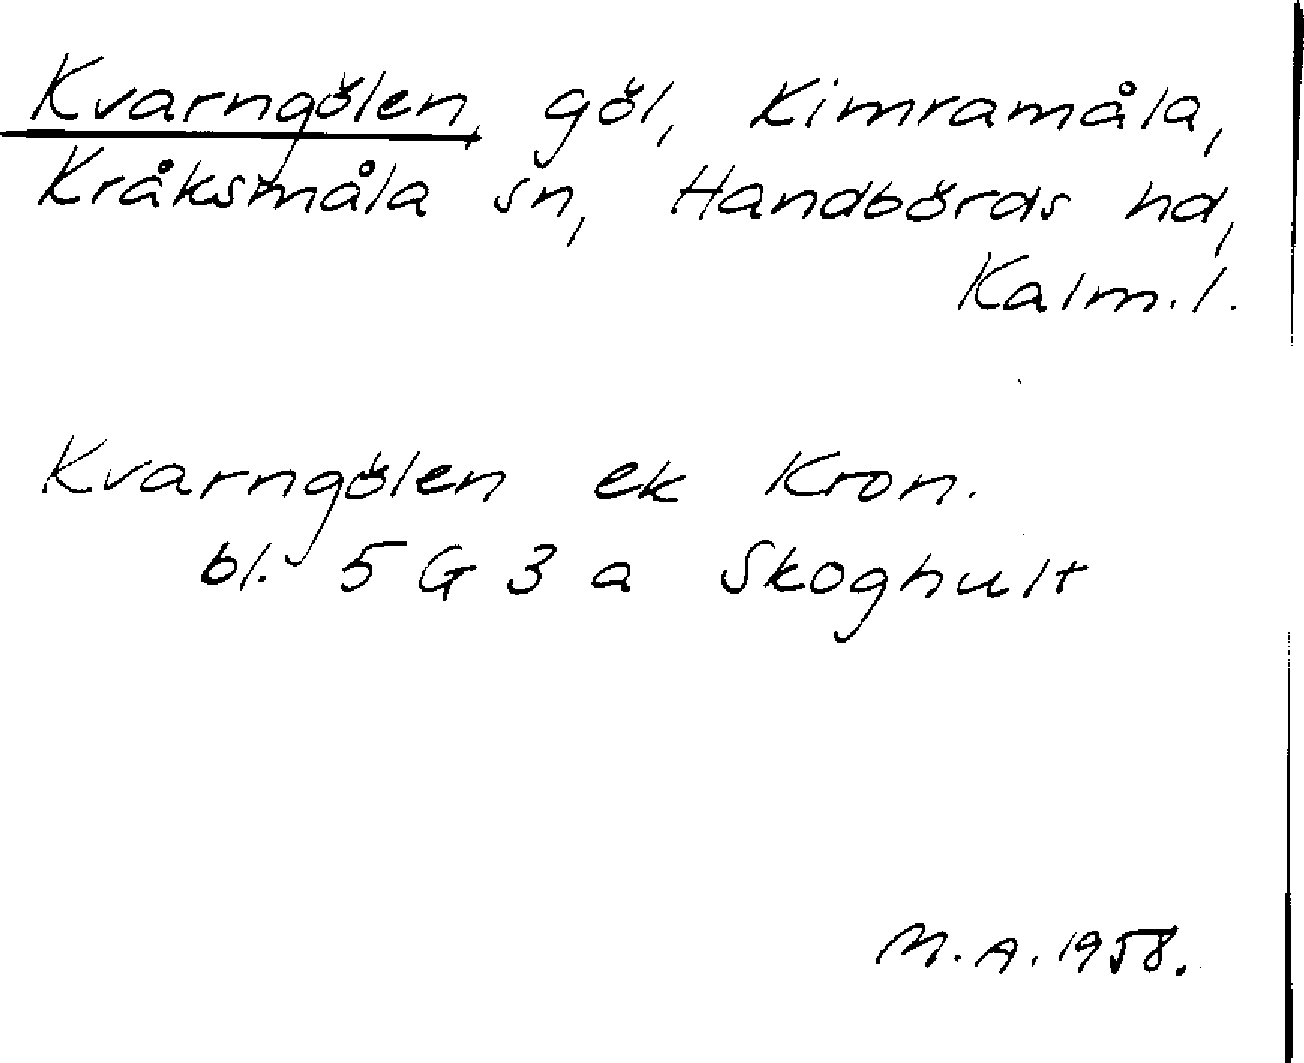 Kvarngölen, göl, Kimramåla,
Kråksmåla sn, Handbörds hd,
Kalm. l.
Kvarngölen ek Kron.
bl. 5 G 3 a Skoghult
M. A. 1958.